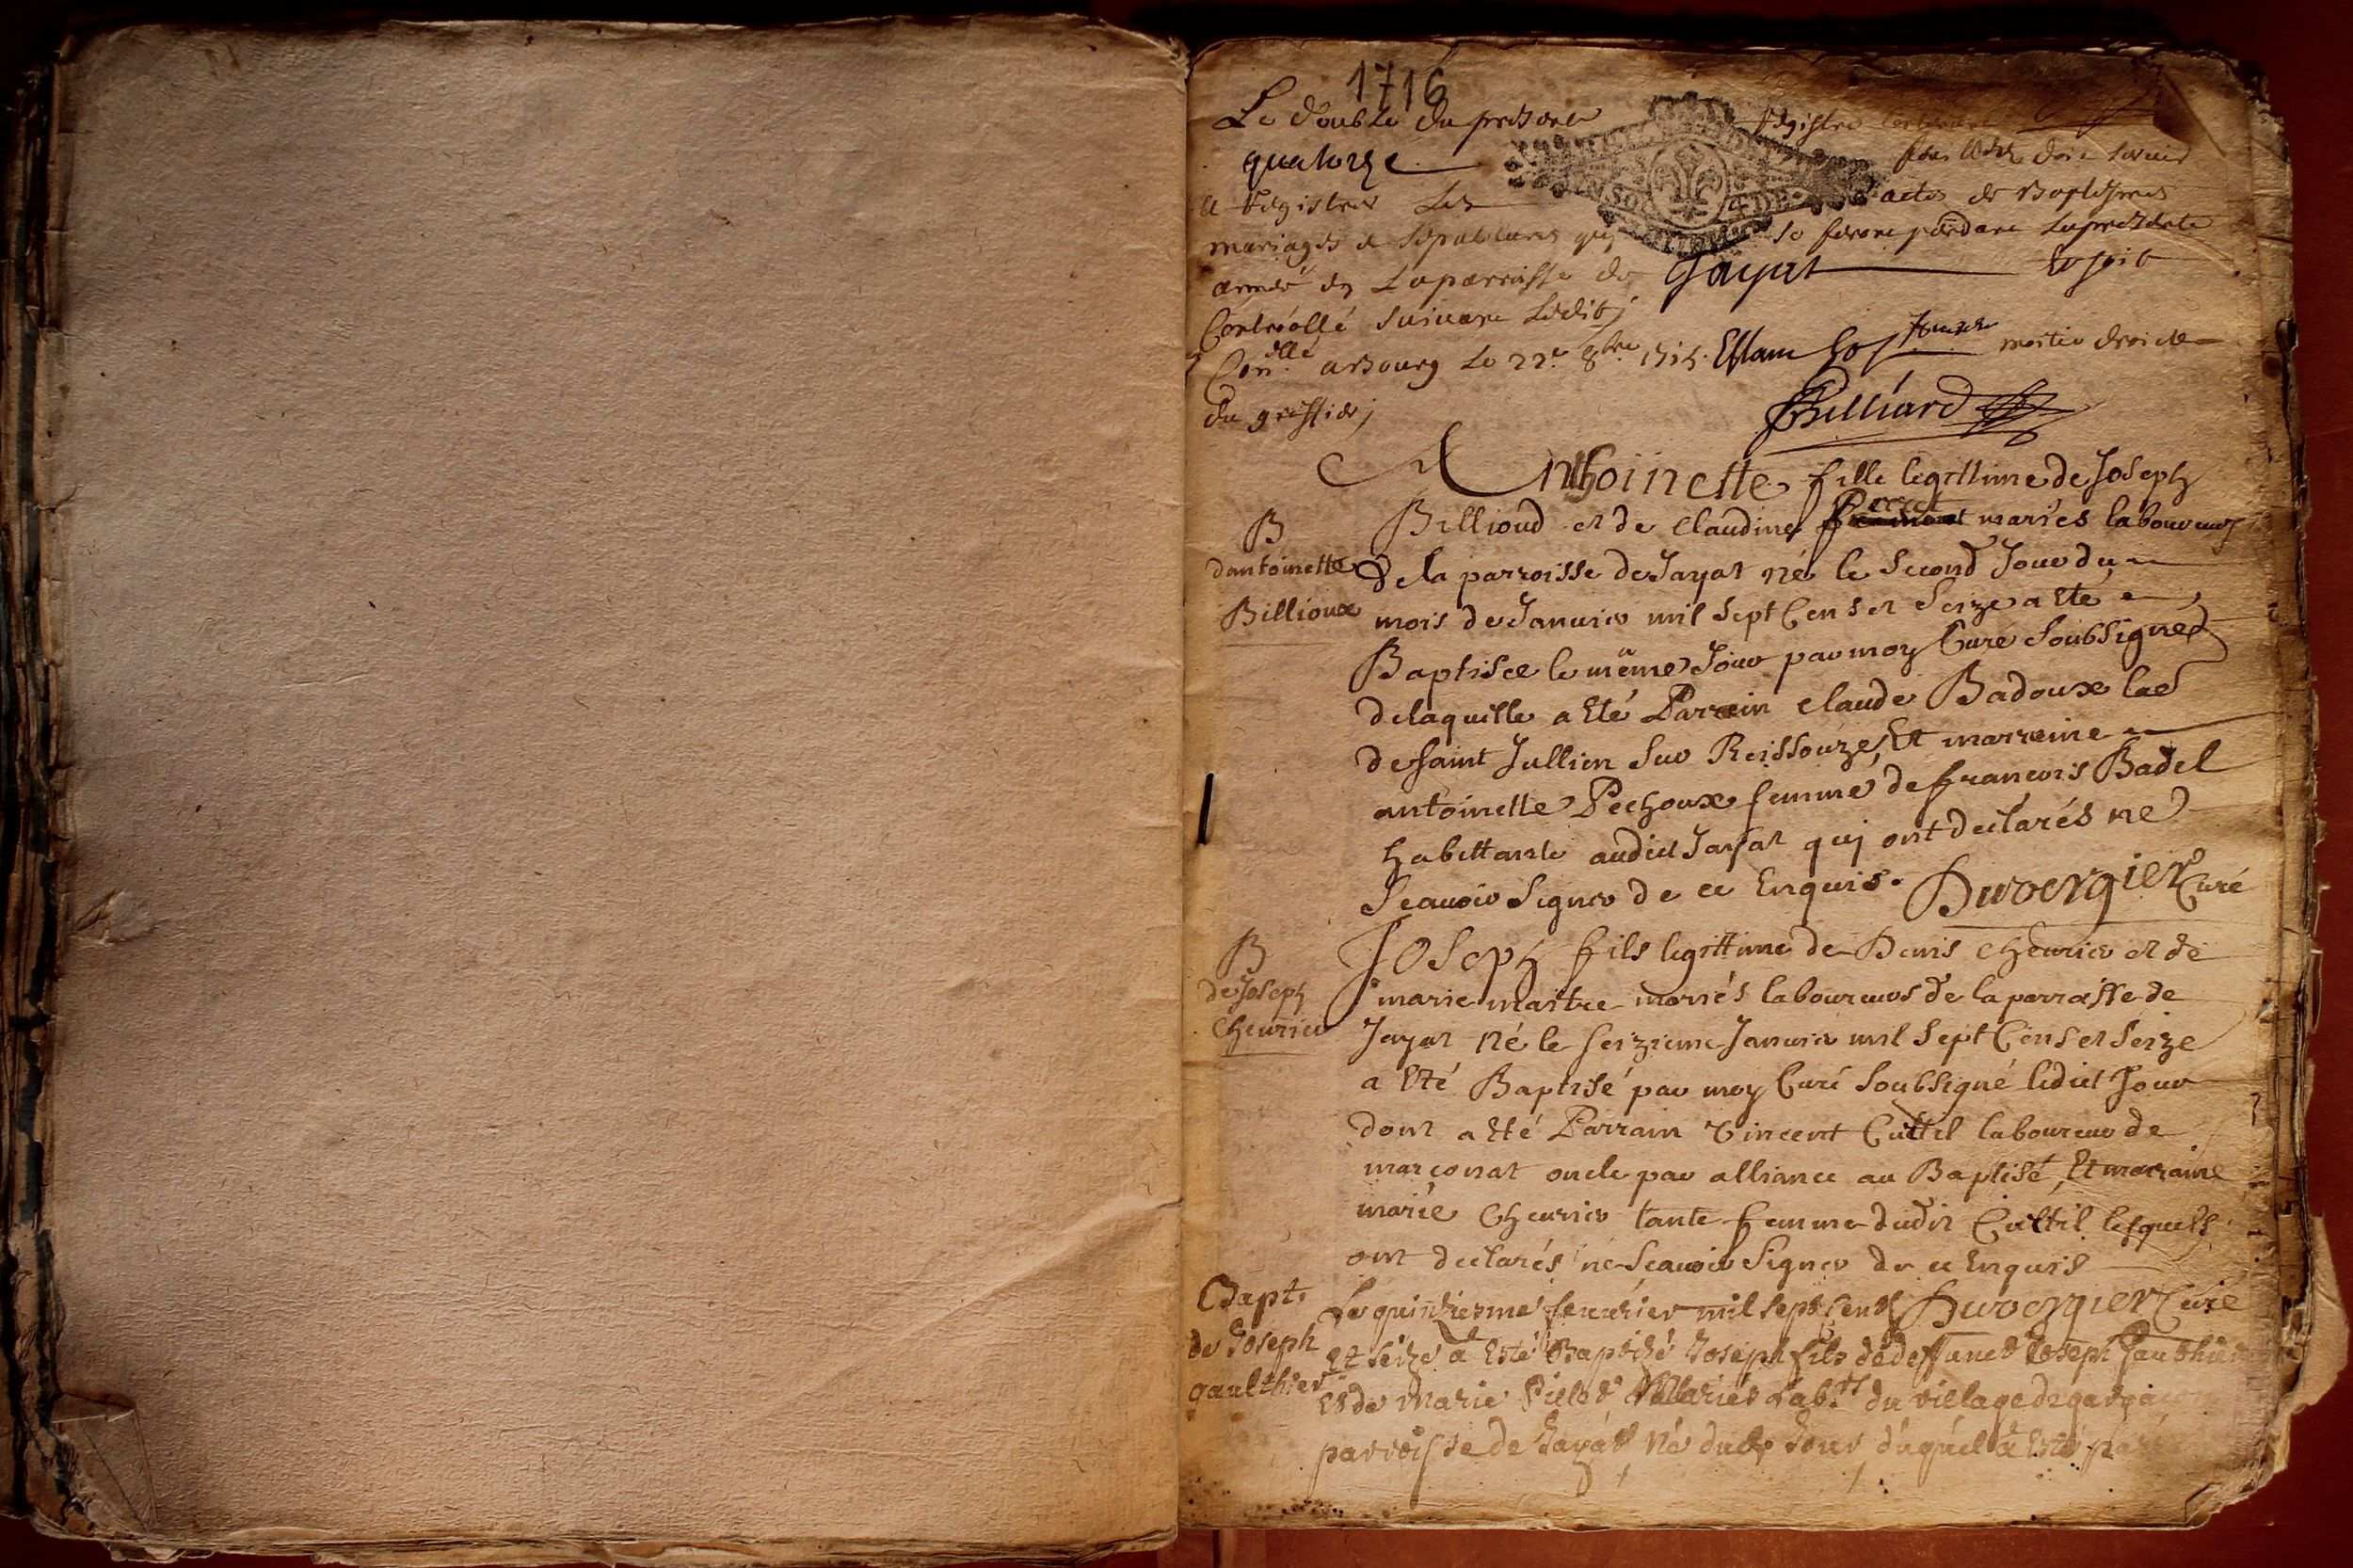 1716
Le double du present Registre contenant
quatorze feuilletz doit servir
a Registrer Les actes de Baptesmes
mariages et sepultures qui se feront pendant La presente
année en La parroisse de Jayat
Controollé suivant Ledit
Con.ollé a Bourg Le 22e 8bre 1715. moitié droicte
du greffier
Billiard
Anthoinette fille legittime de Joseph
B
dantoinette
Billioux
Billioud et de Claudine Perret mariés laboureurs
de la parroisse de Jayat né le second Jour du
mois de Januier mil sept Cens et Seize a Eté
Baptisée le même Jour par moy Curé Soubsigné
de laquelle a Eté Parrein Claude Badoux
de saint Jullien sur Reissouze, Et marreine
antoinette Pechoux femme de francois Badel
habittante audict Jayat qui ont declarés ne
Scauoir Signer de ce Enquis. Duvergier Curé
B
de Joseph
Cheurier
Joseph fils legittime de Denis Cheurier et de
marie maitre mariés laboureurs de la parroisse de
Jayat né le seizieme Januier mil Sept Cens et Seize
a Eté Baptisé par moy Curé Soubsigné ledict Jour
dont a Eté Parrain Vincent Cuttil laboureur de
marconat oncle par alliance au Baptisé, Et marraine
marie Cheurier tante femme dudit Cuttil lesquels
ont declarés ne Scauoir Signer de ce Enquis
Duvergier Curé
Bapt.
de Joseph
gaulthier
Le quinziesme feuurier mil sept cent
et seize a Esté Baptizé Joseph fils de deffunct Joseph Gauthier
Et de Marie Mariés Lab.rs du village de
parroisse de Jayat, Né dudt Jour, duquel a Esté